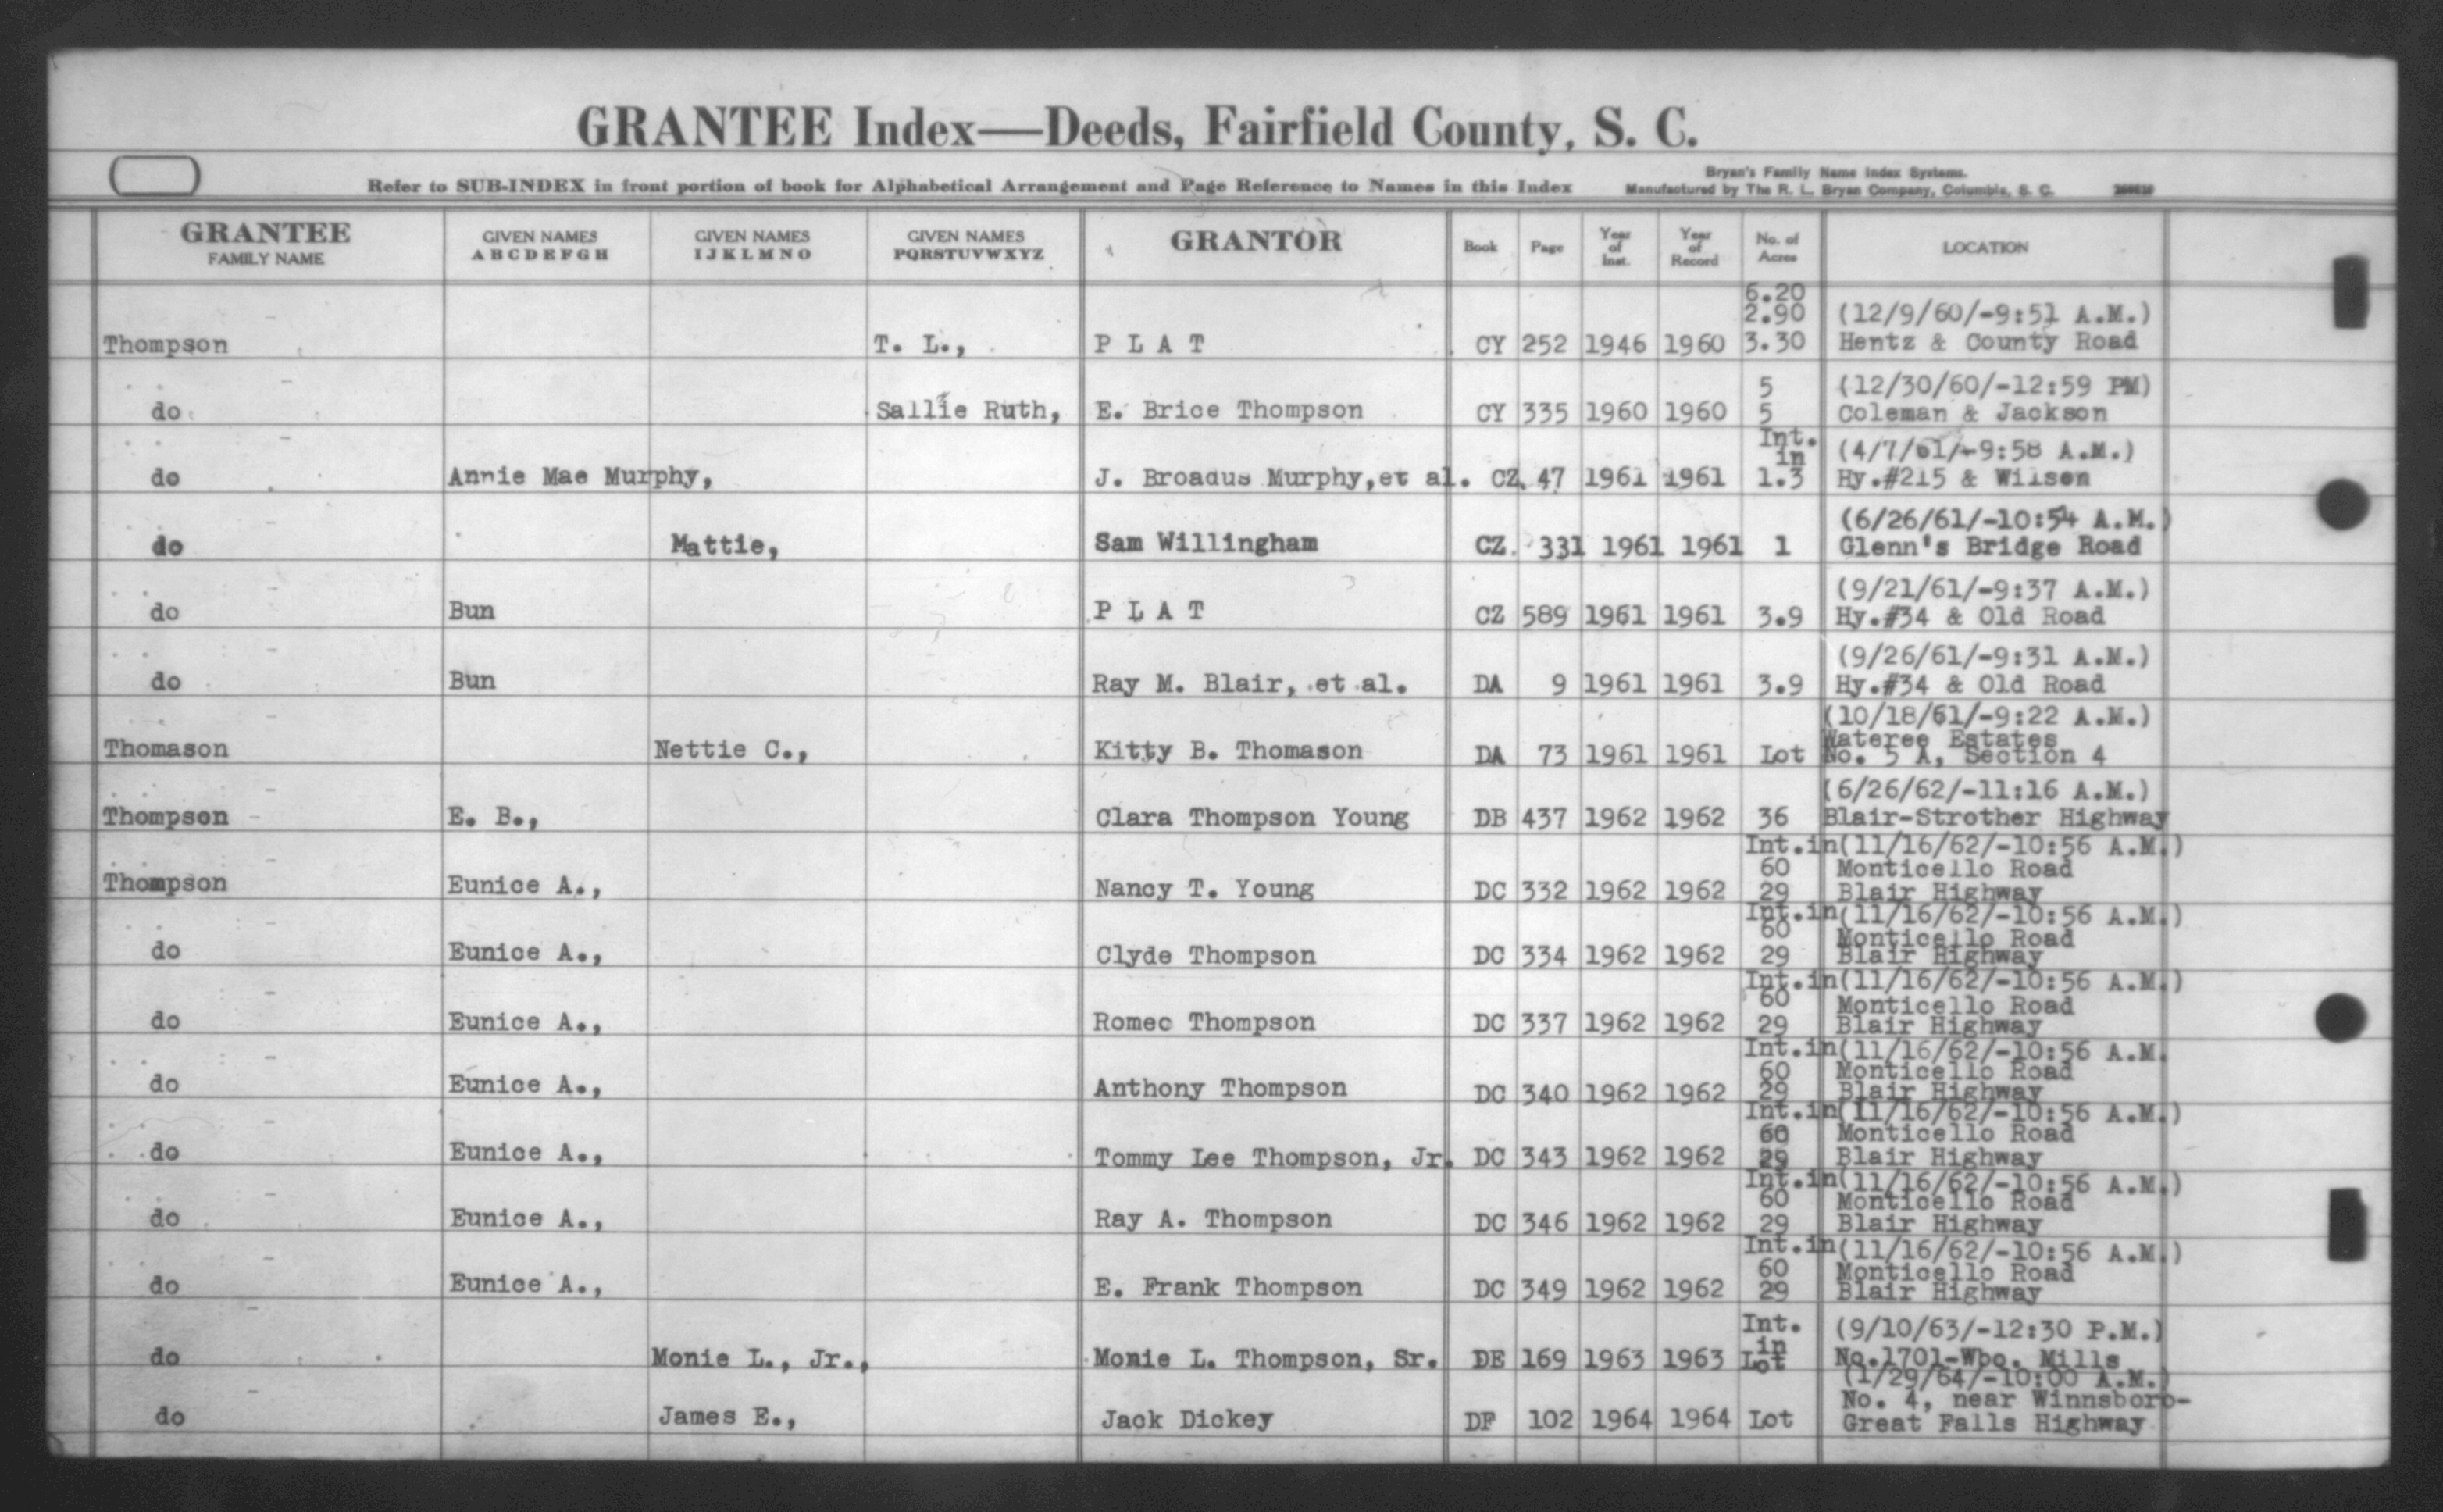 GRANTEE Index—Deeds, Fairfield County, S. C.
Refer to SUB-INDEX in front portion of book for Alphabetical Arrangement and Page Reference to Names in this Index
Bryan's Family Name Index Systems.
Manufactured by The R. L. Bryan Company, Columbia, S. C.
GRANTEE FAMILY NAME | GIVEN NAMES A B C D E F G H | GIVEN NAMES I J K L M N O | GIVEN NAMES PQRSTUVWXYZ | GRANTOR | Book | Page | Year of Inst. | Year of Record | No. of Acres | LOCATION
6.20
2.90 (12/9/60/-9:51 A.M.)
Thompson T. L., P L A T CY 252 1946 1960 3.30 Hentz & County Road
5 (12/30/60/-12:59 PM)
do Sallie Ruth, E. Brice Thompson CY 335 1960 1960 5 Coleman & Jackson
Int. in (4/7/61/-9:58 A.M.)
do Annie Mae Murphy, J. Broadus Murphy,et al. CZ 47 1961 1961 1.3 Hy.#215 & Wilson
(6/26/61/-10:54 A.M.)
do Mattie, Sam Willingham CZ 331 1961 1961 1 Glenn's Bridge Road
(9/21/61/-9:37 A.M.)
do Bun P L A T CZ 589 1961 1961 3.9 Hy.#34 & Old Road
(9/26/61/-9:31 A.M.)
do Bun Ray M. Blair, et al. DA 9 1961 1961 3.9 Hy.#34 & Old Road
(10/18/61/-9:22 A.M.)
Wateree Estates
Thomason Nettie C., Kitty B. Thomason DA 73 1961 1961 Lot No. 5 A, Section 4
(6/26/62/-11:16 A.M.)
Thompson E. B., Clara Thompson Young DB 437 1962 1962 36 Blair-Strother Highway
Int.in(11/16/62/-10:56 A.M.)
60 Monticello Road
Thompson Eunice A., Nancy T. Young DC 332 1962 1962 29 Blair Highway
Int.in(11/16/62/-10:56 A.M.)
60 Monticello Road
do Eunice A., Clyde Thompson DC 334 1962 1962 29 Blair Highway
Int.in(11/16/62/-10:56 A.M.)
60 Monticello Road
do Eunice A., Romeo Thompson DC 337 1962 1962 29 Blair Highway
Int.in(11/16/62/-10:56 A.M.
60 Monticello Road
do Eunice A., Anthony Thompson DC 340 1962 1962 29 Blair Highway
Int.in(11/16/62/-10:56 A.M.)
60 Monticello Road
do Eunice A., Tommy Lee Thompson, Jr. DC 343 1962 1962 29 Blair Highway
Int.in(11/16/62/-10:56 A.M.)
60 Monticello Road
do Eunice A., Ray A. Thompson DC 346 1962 1962 29 Blair Highway
Int.in(11/16/62/-10:56 A.M.)
60 Monticello Road
do Eunice A., E. Frank Thompson DC 349 1962 1962 29 Blair Highway
Int. in (9/10/63/-12:30 P.M.)
do Monie L., Jr., Monie L. Thompson, Sr. DE 169 1963 1963 Lot No.1701-Wbo. Mills
(1/29/64/-10:00 A.M.)
No. 4, near Winnsboro-
do James E., Jack Dickey DF 102 1964 1964 Lot Great Falls Highway